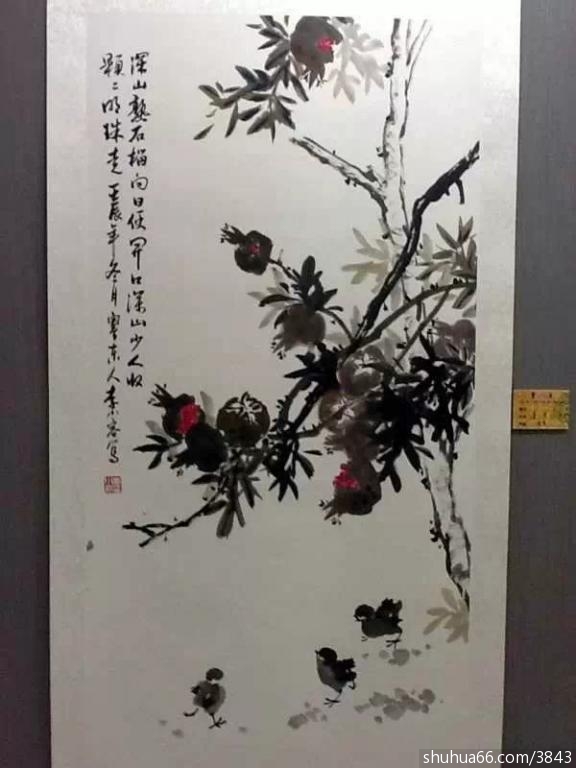 深山熟石榴向日便開口深山少人收
顆二明珠走 壬辰年冬月寧东人李
shuhua66.com/3843